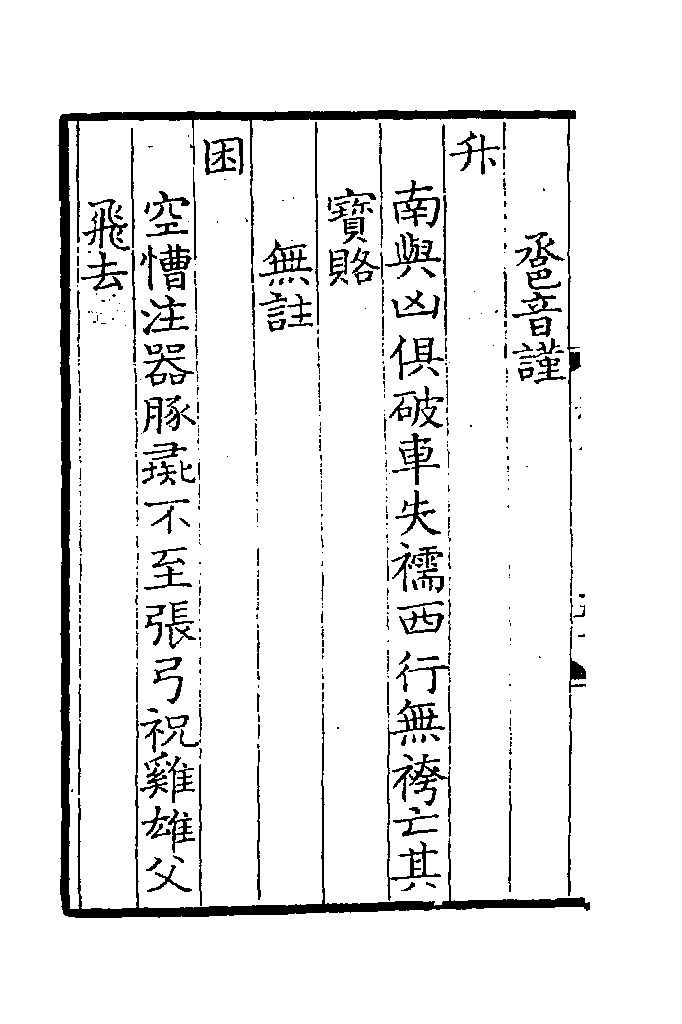 巹音謹
升
南與凶俱破車失襦西行無袴亡其
寶賂
無註
困
空慒注器豚彘不至張弓祝雞雄父
飛去